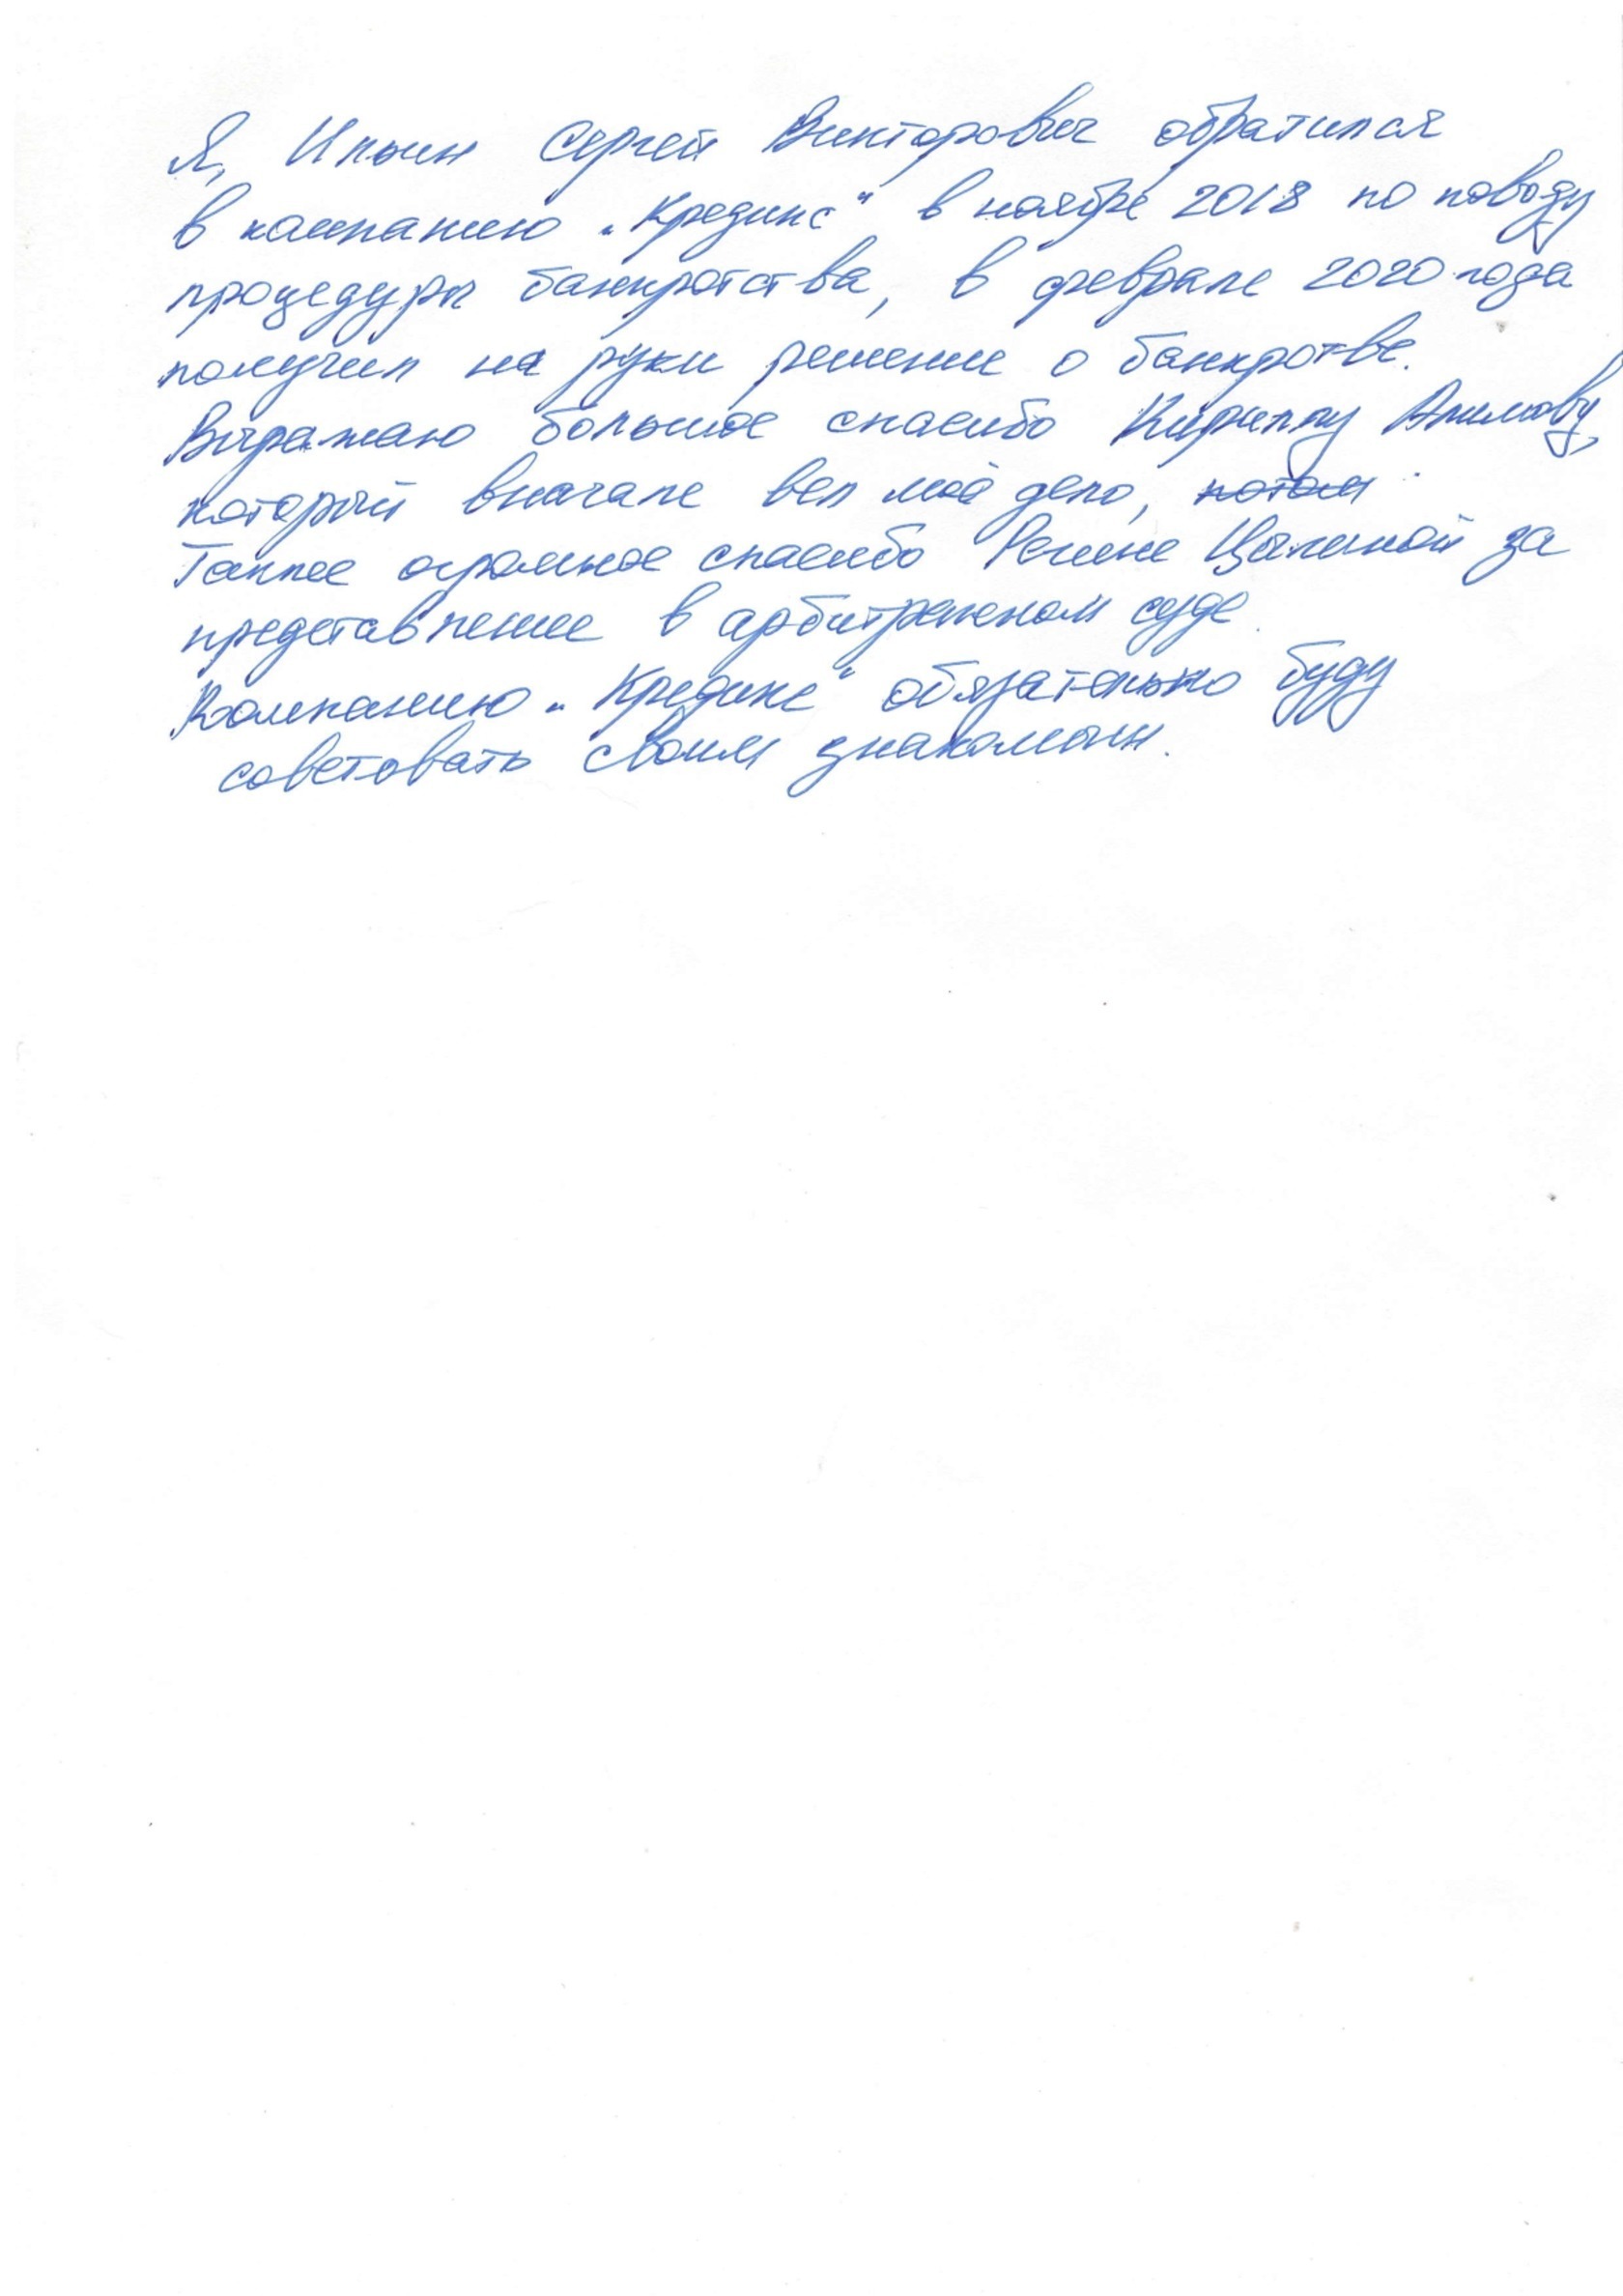 Я, Ильин Сергей Викторович обратился
в компанию „Кредикс“ в ноябре 2018 по поводу
процедуры банкротства, в феврале 2020 года
получил на руки решение о банкротстве.
Выражаю большое спасибо Кириллу Акимову,
который вначале вел моё дело, потом
Также огромное спасибо Регине Цылиной за
представление в арбитражном суде.
Компанию „Кредикс“ обязательно буду
советовать своим знакомым.